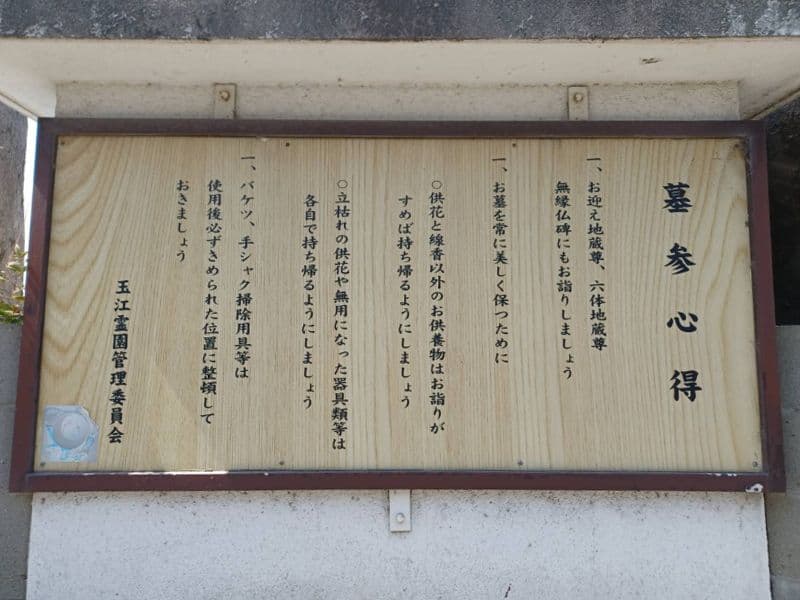 墓参心得
一、お迎え地蔵尊、六体地蔵尊
無縁仏碑にもお詣りしましょう
一、お墓を常に美しく保つために
○供花と線香以外のお供養物はお詣りが
すめば持ち帰るようにしましょう
○立枯れの供花や無用になった器具類等は
各自で持ち帰るようにしましょう
一、バケツ、手シャク掃除用具等は
使用後必ずきめられた位置に整頓して
おきましょう
玉江霊園管理委員会